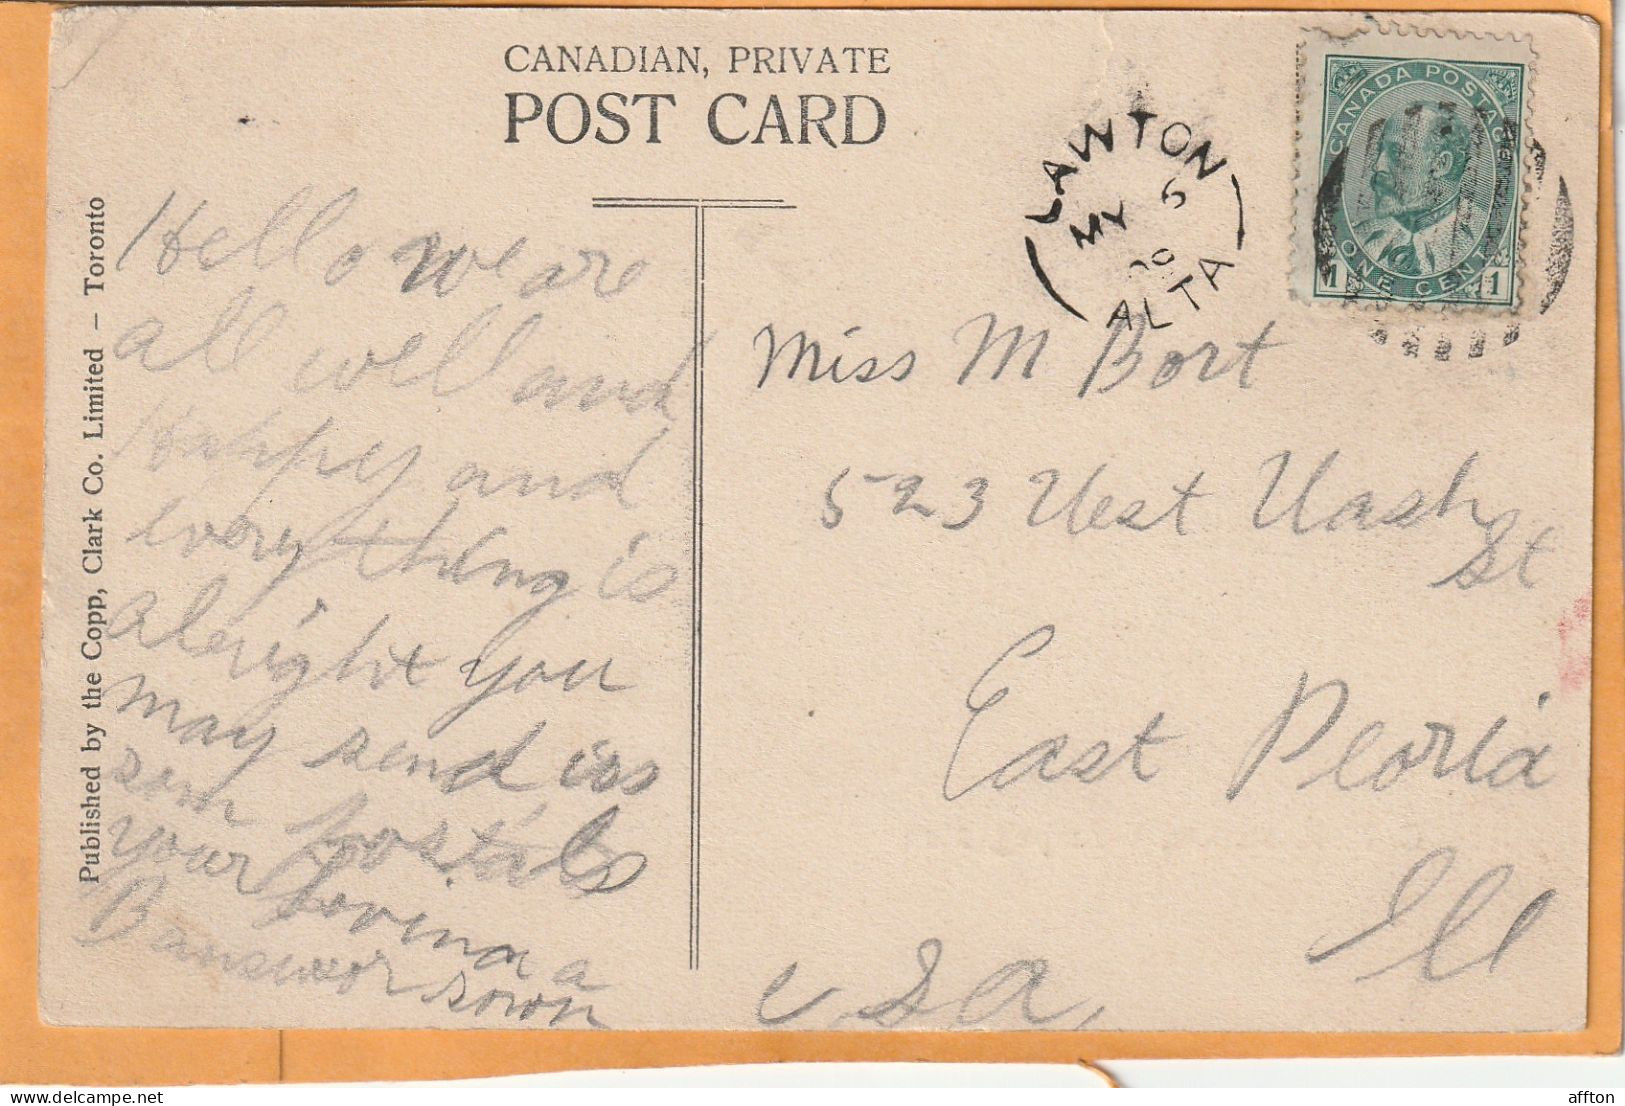 CANADIAN, PRIVATE
POST CARD
Published by the Copp, Clark Co. Limited – Toronto
LAWTON
MY 5
ALTA
CANADA POSTAGE
1 ONE CENT 1
Hello we are
all well and
Happy and
every thing is
aleright you
may send us
som postals
your Lovina a
Miss M Bort
523 West Wash
St
East Peoria
Ill
USA,
affton